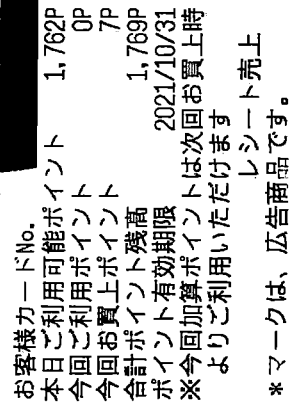 お客様カードNo.
本日ご利用可能ポイント 1,762P
今回ご利用ポイント 0P
今回お買上ポイント 7P
合計ポイント残高 1,769P
ポイント有効期限 2021/10/31
※今回加算ポイントは次回お買上時
よりご利用いただけます
レシート売上
*マークは、広告商品です。